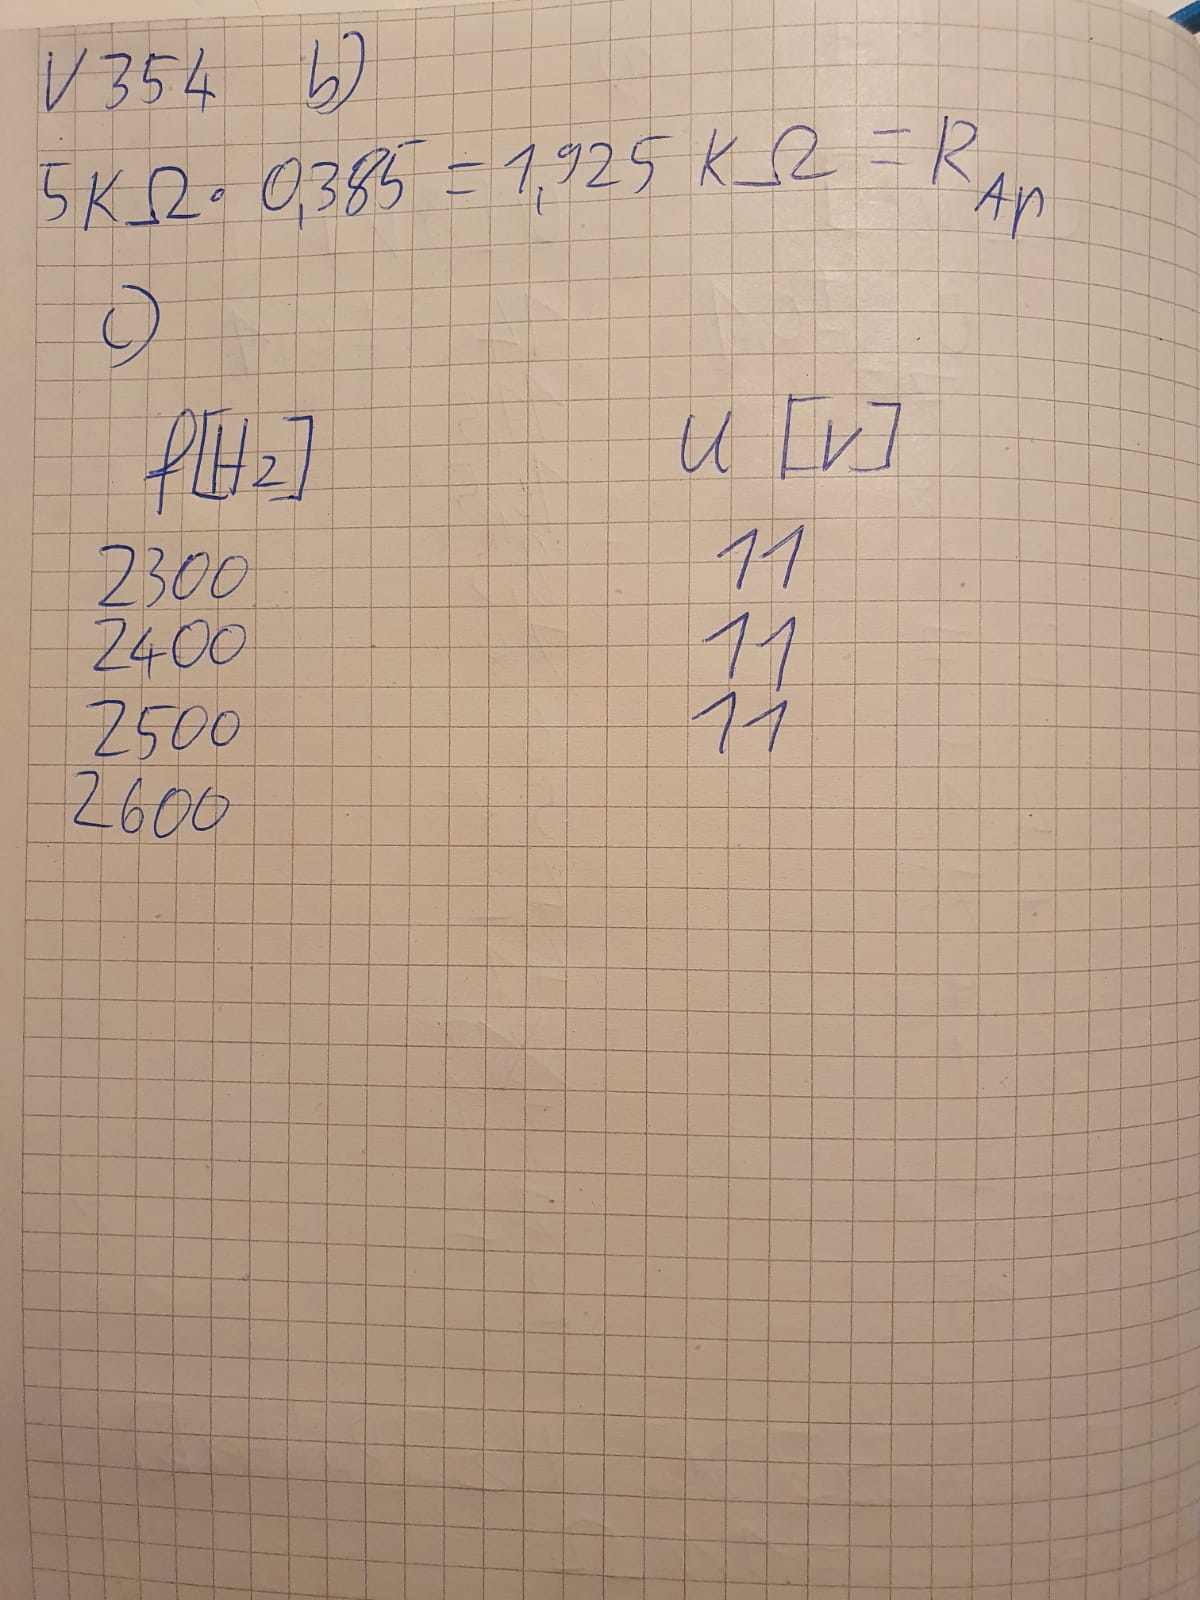 V354 b)
5KΩ · 0,385 = 1,925 KΩ = R_Ap
c)
f[Hz] U [V]
2300 11
2400 11
2500 11
2600